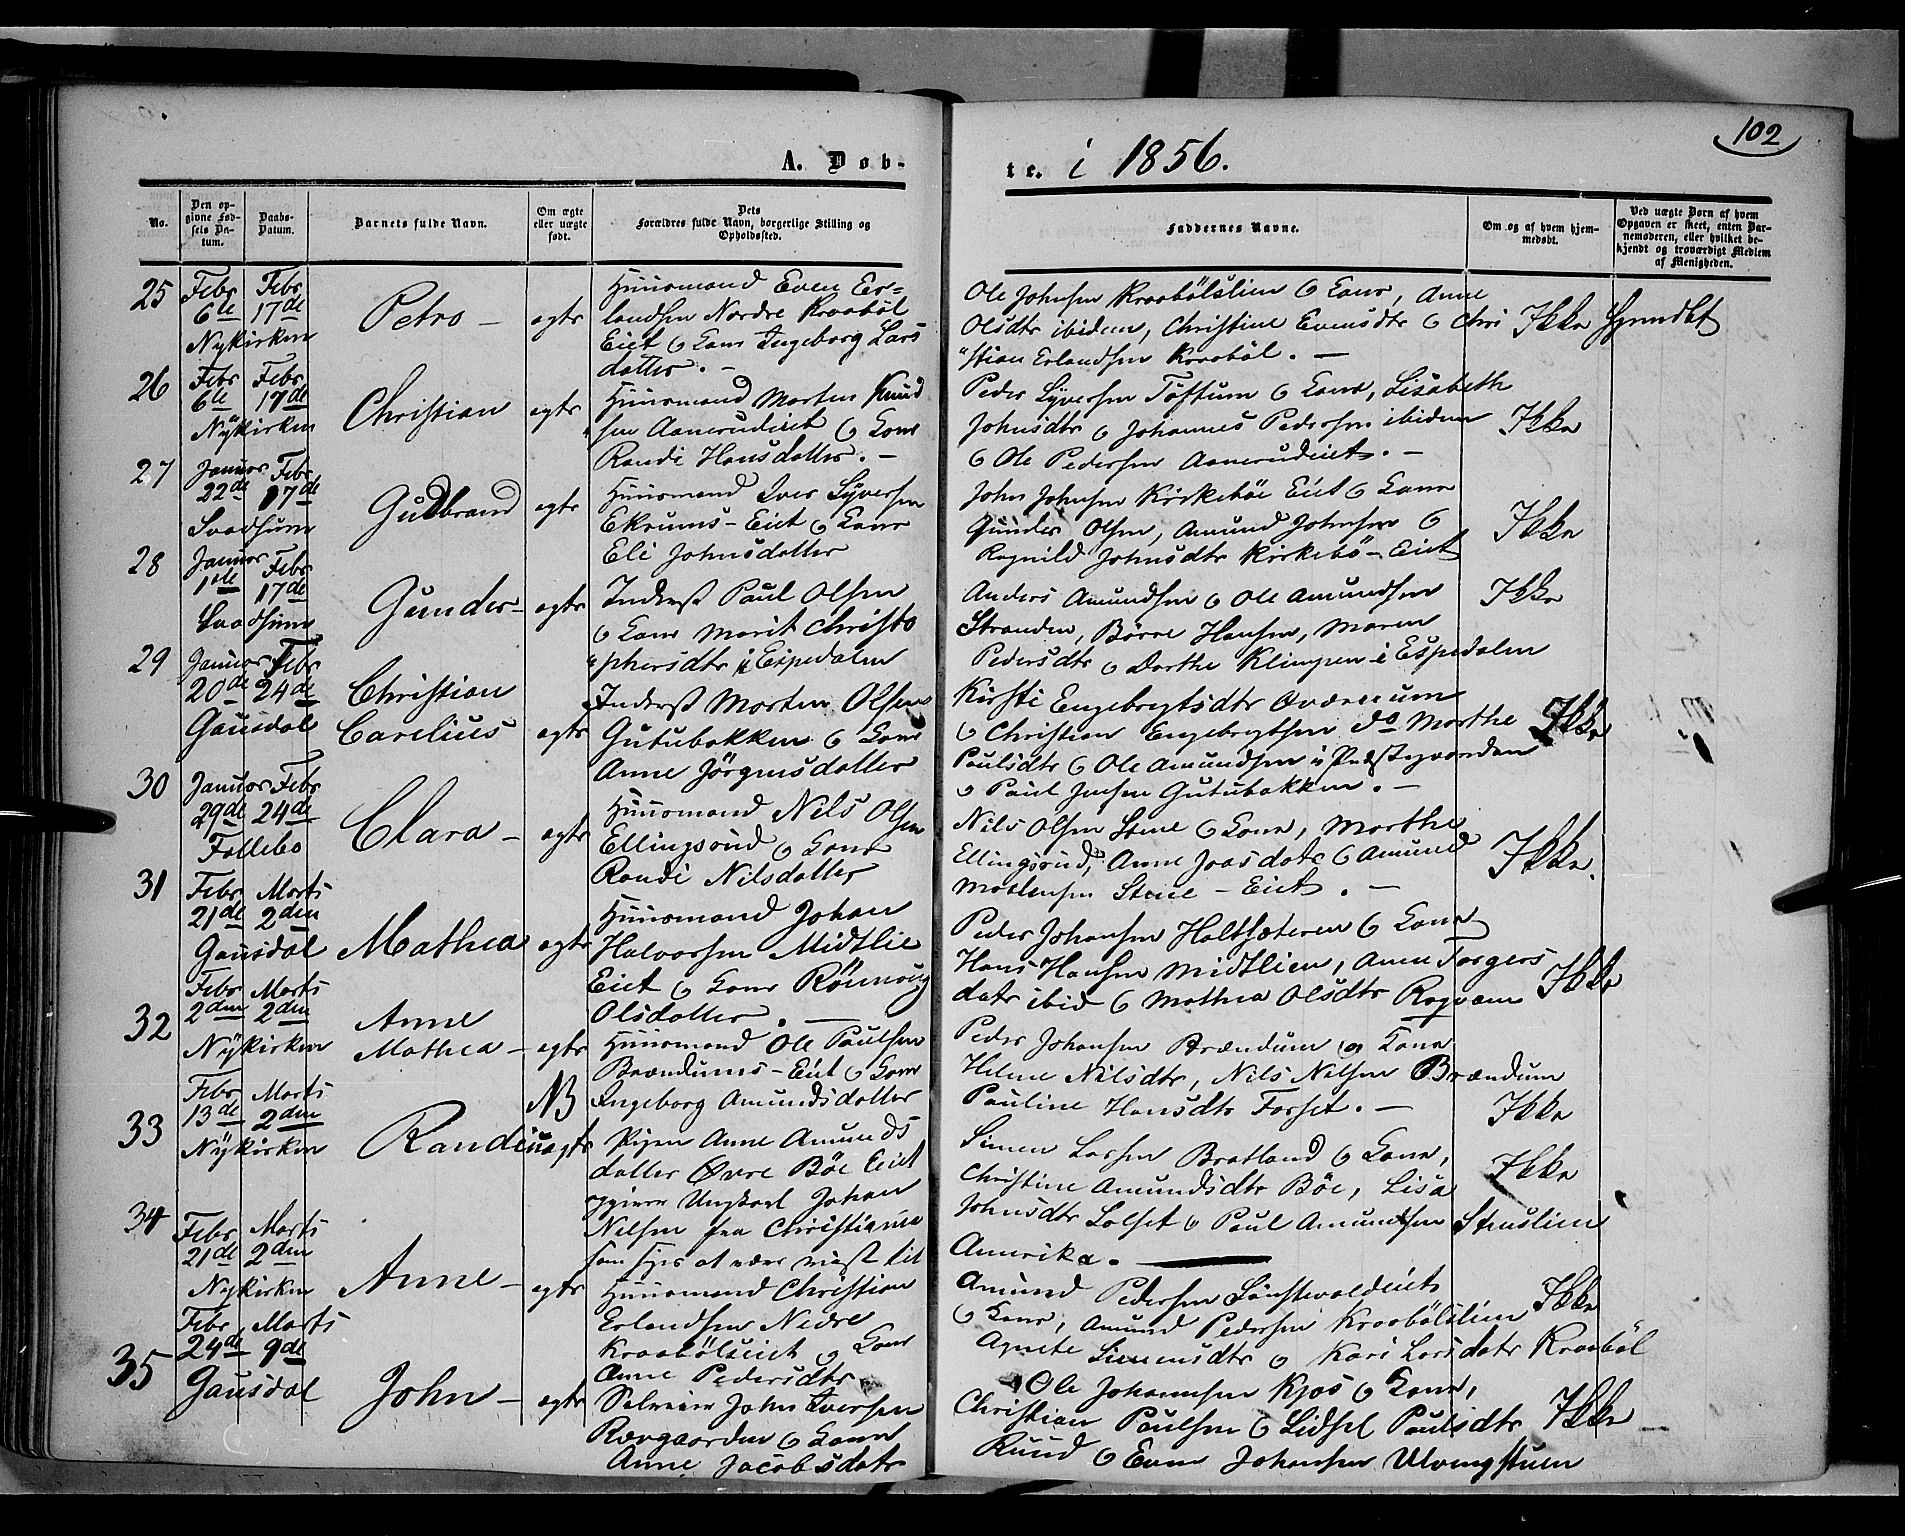 102
A. Døb-
te. i 1856.
No.
Den op-
givne Fød-
sels Da-
tum.
Daabs-
Datum.
Barnets fulde Navn.
Om ægte
eller uægte
født.
Dets
Forældres fulde Navn, borgerlige Stilling og
Opholdssted.
Faddernes Navne.
Om og af hvem hjem-
medøbt.
Ved uægte Børn af hvem
Opgaven er skeet, enten Bar-
nemoderen, eller hvilket be-
kjendt og troværdigt Medlem
af Menigheden.
25
Febr 6te
Febr 17de
Nykirken
Petro -
egte
Huusmand Even Er=
landsen Nordre Kraabøl
Eiet & Kone Ingeborg Lars
datter. -
Ole Johnsen Kraabølslien & Kone, Anne
Olsdtr ibidem, Christine Evensdtr & Chri
"stian Erlandsen Kraabøl. -
Ikke
26
Febr 6te
Febr 17de
Nÿkirken
Christian
egte
Huusmand Morten Knud
"sen Aanerudeiet & Kone
Randi Hansdatter. -
Peder Syversen Toftum & Kone, Lisabeth
Johnsdtr & Johannes Pedersen ibidem
& Ole Pedersen Aanerudeiet. -
Ikke
27
Januar 22de
Febr 17de
Svadsum
Gudbrand
egte
Huusmand Iver Syversen
Ekrums-Eiet & Kone
Eli Johnsdatter
John Johnsen Kirkebøe Eiet & Kone
Gunder Olsen, Amund Johnsen &
Ragnild Johnsdtr Kirkebø-Eiet
Ikke
28
Januar 1ste
Febr 17de
Svadsum
Gunder-
egte
Inderst Paul Olsen
& Kone Marit Christo
"phersdtr i Espedalen
Anders Amundsen & Ole Amundsen
Stranden, Børre Hansen, Maren
Pedersdtr & Dorthe Klimpen i Espedalen
Ikke
29
Januar 20de
Febr 24de
Gausdal
Christian
Carelius
egte
Inderst Morten Olsen
Gutubakken & Kone
Anne Jörgensdatter
Kirsti Engebregtsdtr
& Christian Engebregtsen do Marthe
Paulsdtr & Ole Amundsen i Præstegaarden
& Paul Jensen Gutubakken. -
Ikke
30
Januar 29de
Febr 24de
Follebo
Clara -
egte
Huusmand Nils Olsen
Ellingsrud & Kone
Randi Nilsdatter
Nils Olsen Stene & Kone, Marthe
Ellingsrud, Anne Joasdatr & Amund
Mortensen Stene - Eiet. -
Ikke.
31
Febr 21de
Marts 2den
Gausdal
Mathea
egte
Huusmand Johan
Halvorsen Midtlie
Eiet & Kone Rönnaug
Olsdatter. -
Peder Johansen Holtsæteren & Kone
Hans Hansen Midtlien, Anne Torgers
datr ibid & Mathea Olsdtr Rogvam
Ikke
32
Febr 2den
Marts 2den
Nÿkirken
Anne
Mathea -
egte
Huusmand Ole Paulsen
Brændums-Eiet & Kone
Ingeborg Amundsdatter
Peder Johansen Brændum & Kone
Helene Nilsdtr, Nils Nilsen Brændum
Pauline Hansdtr Forset. -
Ikke
33
Febr 13de
Marts 2den
Nÿkirken
Randi
NB
uegte
Pigen Anne Amunds
datter Øvre Böe Eiet
opgiver Ungkarl Johan
Nilsen fra Christiania
som siges at være reist til
Simen Larsen Bratland & Kone,
Christine Amundsdtr Böe, Lisa
Johnsdtr Lolset & Paul Amundsen Struslien
Amerika. -
Ikke
34
Febr 21de
Marts 2den
Nykirken
Anne -
egte
Huusmand Christian
Erlandsen Nedre
Kraabølseiet & Kone
Anne Pedersdtr
Amund Pedersen
& Kone, Amund Pedersen Kraabölslien
Agnete Simensdtr & Kari Larsdatr Kraaböl
Ikke
35
Febr 24de
Marts 9de
Gausdal
John -
egte
Selveier John Iversen
Rævgaarden & Kone
Anne Jacobsdatr
Ole Johannsen Kjos & Kone,
Christian Paulsen & Lidsel Paulsdtr
Ruud & Even Johansen Ulvengstuen
Ikke